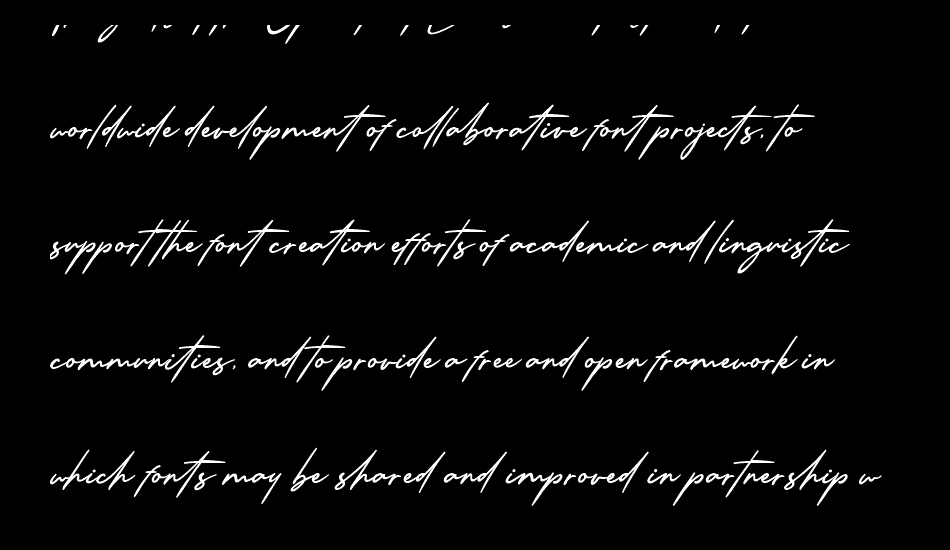 worldwide development of collaborative font projects, to
support the font creation efforts of academic and linguistic
communities, and to provide a free and open framework in
which fonts may be shared and improved in partnership w